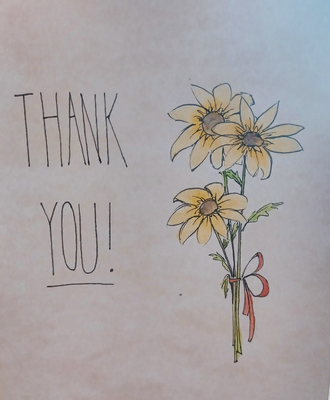 THANK
YOU!